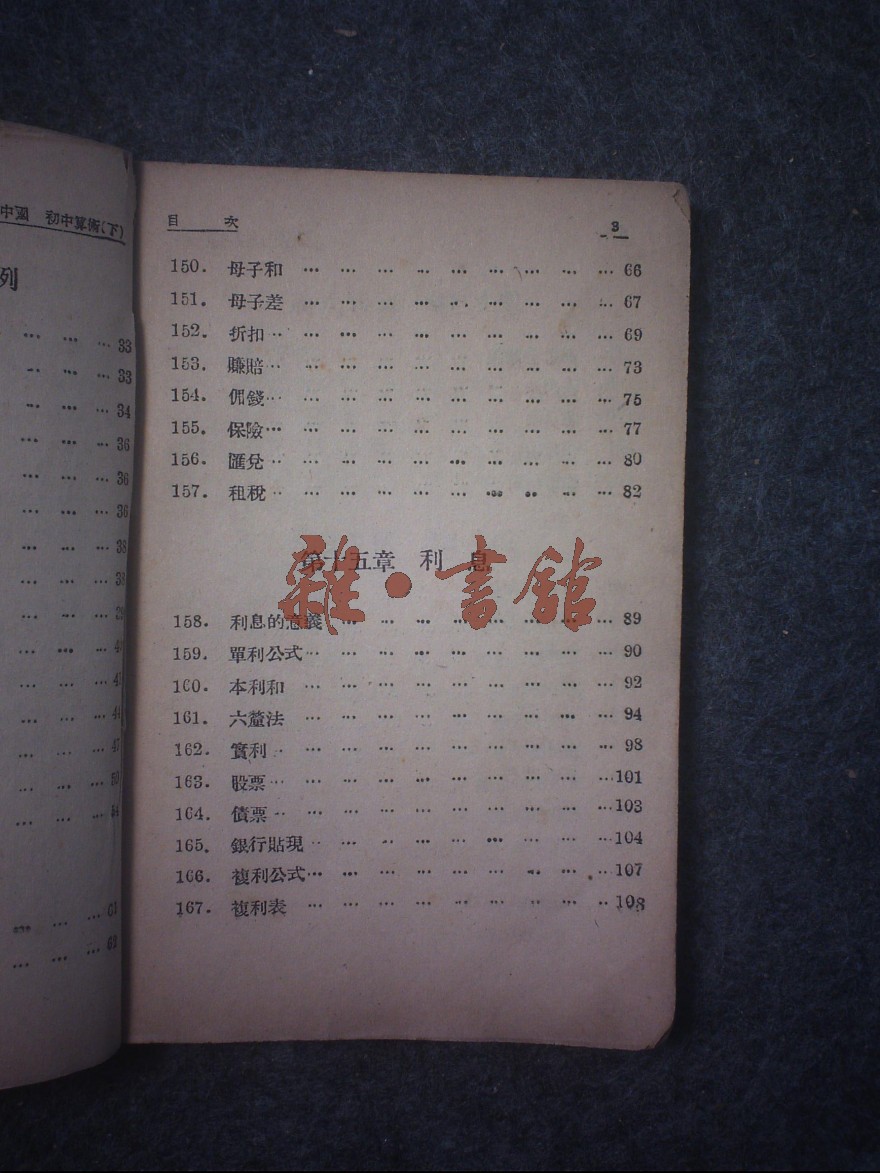 中國 初中算術(下)
列
… … … 33
… … … 33
… … … 34
… … … 36
… … … 36
… … … 36
… … … 38
… … … 38
… … … 39
… … …
… … …
… … … 44
… … … 47
… … … 50
… … … 54
… … … 61
… … … 62
目 次 3
150. 母子和 … … … … … … … … … 66
151. 母子差 … … … … … … … … … 67
152. 折扣 … … … … … … … … … … 69
153. 賺賠 … … … … … … … … … … 73
154. 佣錢 … … … … … … … … … … 75
155. 保險 … … … … … … … … … … 77
156. 匯兌 … … … … … … … … … … 80
157. 租稅 … … … … … … … … … … 82
第十五章 利息
雜·書館
158. 利息的意義 … … … … … … … … 89
159. 單利公式 … … … … … … … … … 90
160. 本利和 … … … … … … … … … 92
161. 六釐法 … … … … … … … … … 94
162. 實利 … … … … … … … … … … 98
163. 股票 … … … … … … … … … … 101
164. 債票 … … … … … … … … … … 103
165. 銀行貼現 … … … … … … … … … 104
166. 複利公式 … … … … … … … … … 107
167. 複利表 … … … … … … … … … 108